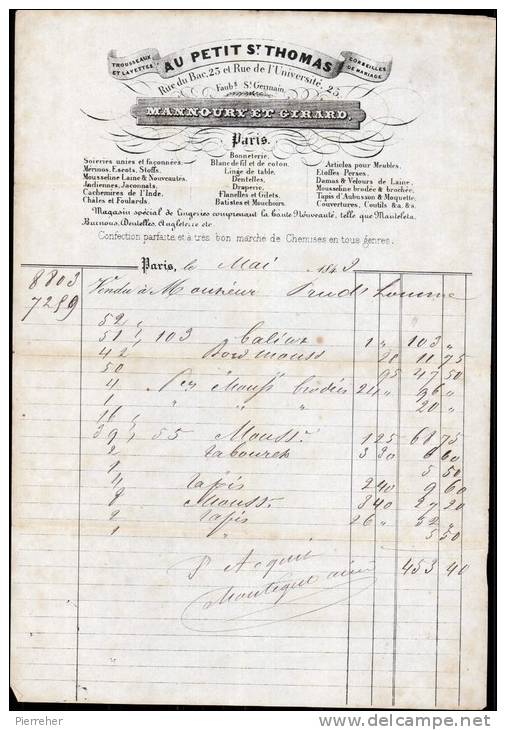 TROUSSEAUX ET LAYETTES
AU PETIT ST THOMAS
CORBEILLES DE MARIAGE
Rue du Bac, 23 et Rue de l'Université, 25,
Faubg St Germain,
MANNOURY ET GIRARD,
Paris.
Soieries unies et façonnées.
Mérinos, Escots, Stoffs.
Mousseline Laine & Nouveautés.
Jardiennes, Jaconnats.
Cachemires de l'Inde.
Châles et Foulards.
Bonneterie.
Blanc de fil et de coton.
Linge de table.
Dentelles,
Draperie,
Flanelles et Gilets.
Batistes et Mouchoirs.
Articles pour Meubles.
Etoffes Perses.
Damas & Velours de Laine,
Mousseline brodée & brochée,
Tapis d'Aubusson & Moquette,
Couvertures, Coutils &a. &a.
Magasin spécial de Lingeries comprenant la haute Nouveauté, telle que Mantelets,
Burnous, Dentelles, Angleterre etc.
Confection parfaite et à très bon marché de Chemises en tous genres.
8803
7259
Paris, le Mai 184
Vendu à Monsieur Prudhomme
52 "
51 1/2 103 1 " 103 "
42 11 75
50 95 47 50
4 brodées 24 " 96 "
1 " " " 20 "
16
55 Mouss. 1 25 68 75
2 tabourets 3 30 6 60
1 5 50
4 tapis 2 40 9 60
8 Mouss. 3 40 27 20
2 tapis 26 " 52 "
1 " 5 50
P Acquit
453 40
Pierreher
www.delcampe.net